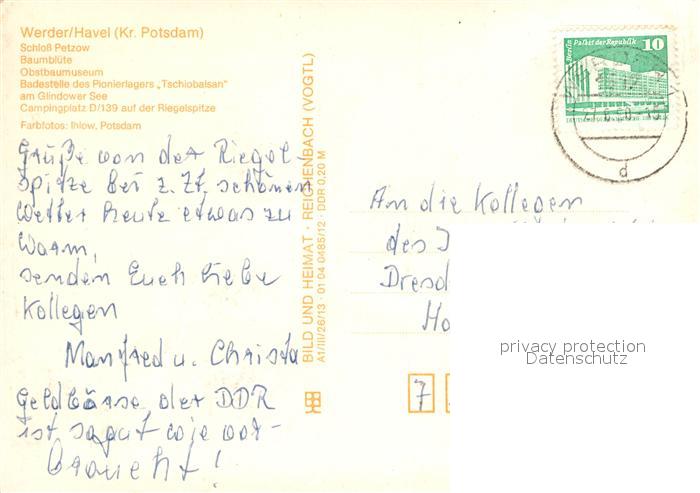 Werder/Havel (Kr. Potsdam)
Schloß Petzow
Baumblüte
Obstbaumuseum
Badestelle des Pionierlagers „Tschiobalsan"
am Glindower See
Campingplatz D/139 auf der Riegelspitze
Farbfotos: Ihlow, Potsdam
Grüße von der Riegel-
spitze bei z. Zt. schönem
Wetter heute etwas zu
warm,
senden Euch liebe
Kollegen
Manfred u. Christa
Geldbörse der DDR
ist sogut wie ver-
braucht!
BILD UND HEIMAT · REICHENBACH (VOGTL)
A1/III/26/13 01 04 0485/12 · DDR 0,20 M
Berlin Palast der Republik
10
d
An die Kollegen
des
Dresd
Ho
7
privacy protection
Datenschutz